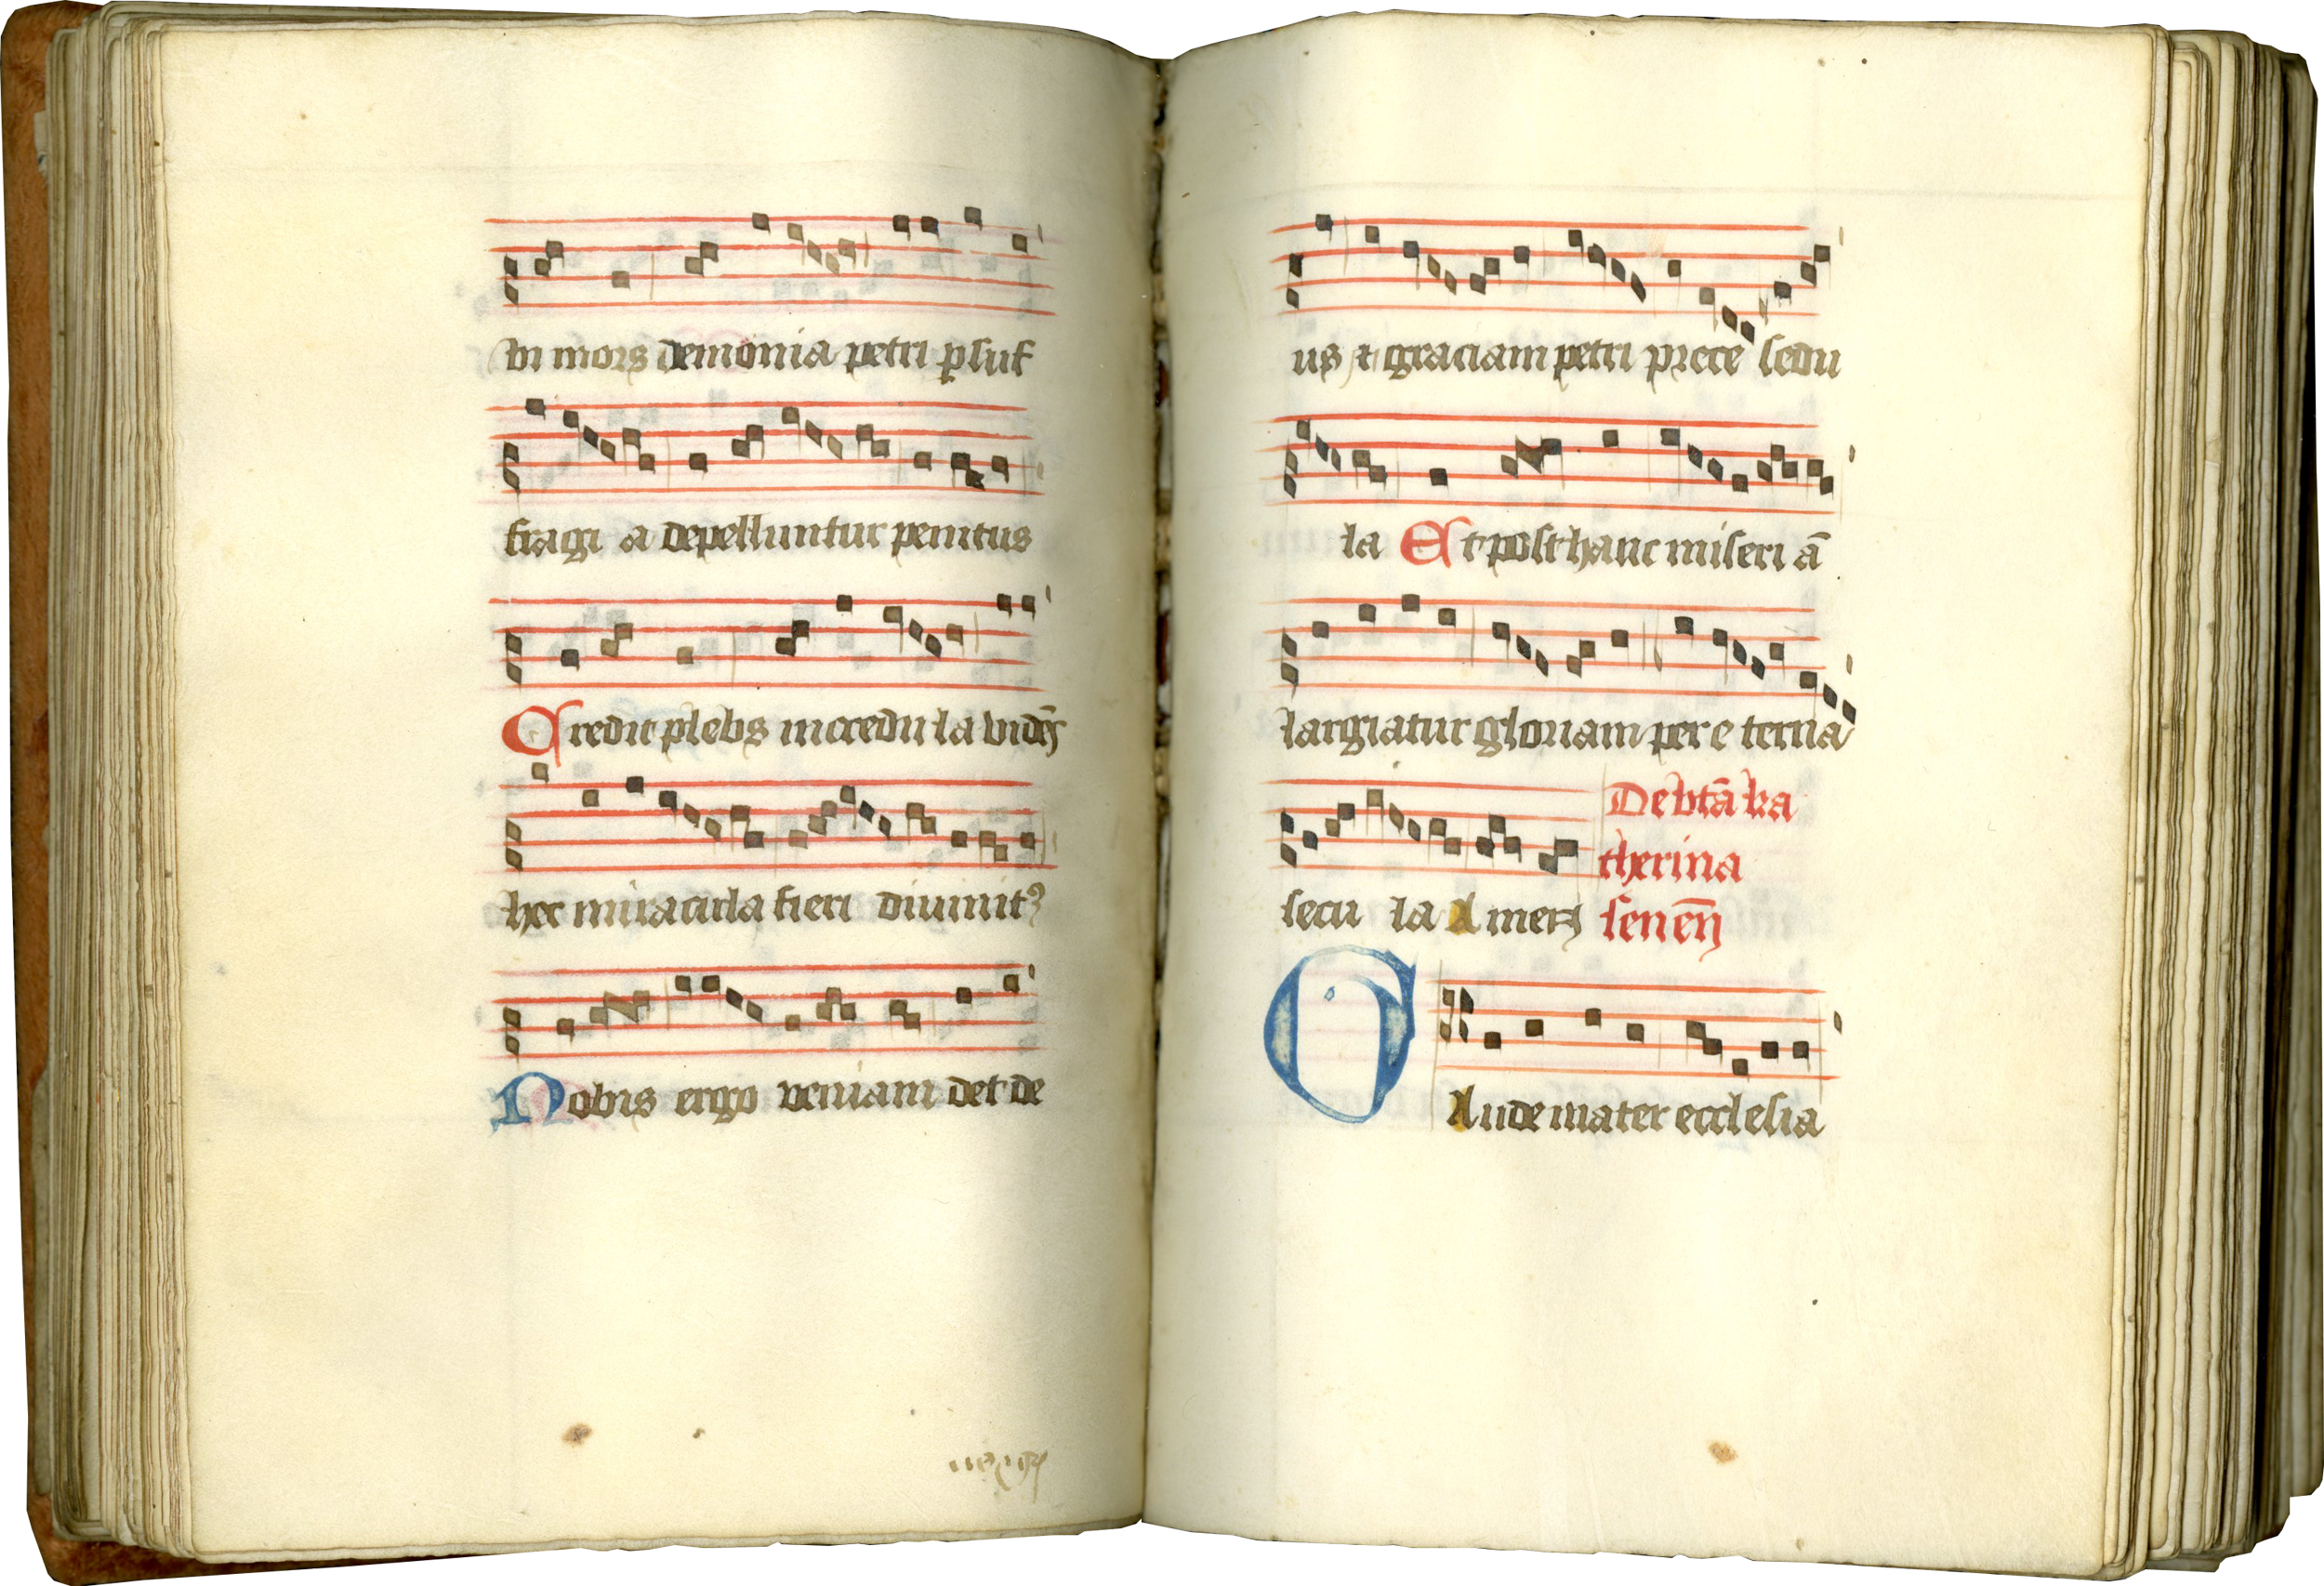 vi mors demonia petri ꝑsuf
fragi a depelluntur penitus
Credit plebs incredula vidēs
hec miracula fieri diuinitꝰ
Nobis ergo veniam det de
us et graciam petri prece sedu
la Et post hanc miseri ā
largiatur gloriam per eterna
secu la Amen
De btā ka
therina
senēn
Gaude mater ecclesia